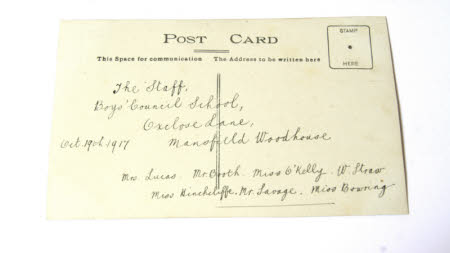 POST CARD
STAMP
HERE
This Space for communication The Address to be written here
The Staff,
Boys' Council School,
Oxclose Lane,
Oct. 19th 1917 Mansfield Woodhouse
Mrs Lucas. Mr. Booth. Miss O'Kelly. W. Straw
Miss Hinchcliffe. Mr. Savage. Miss Bowring